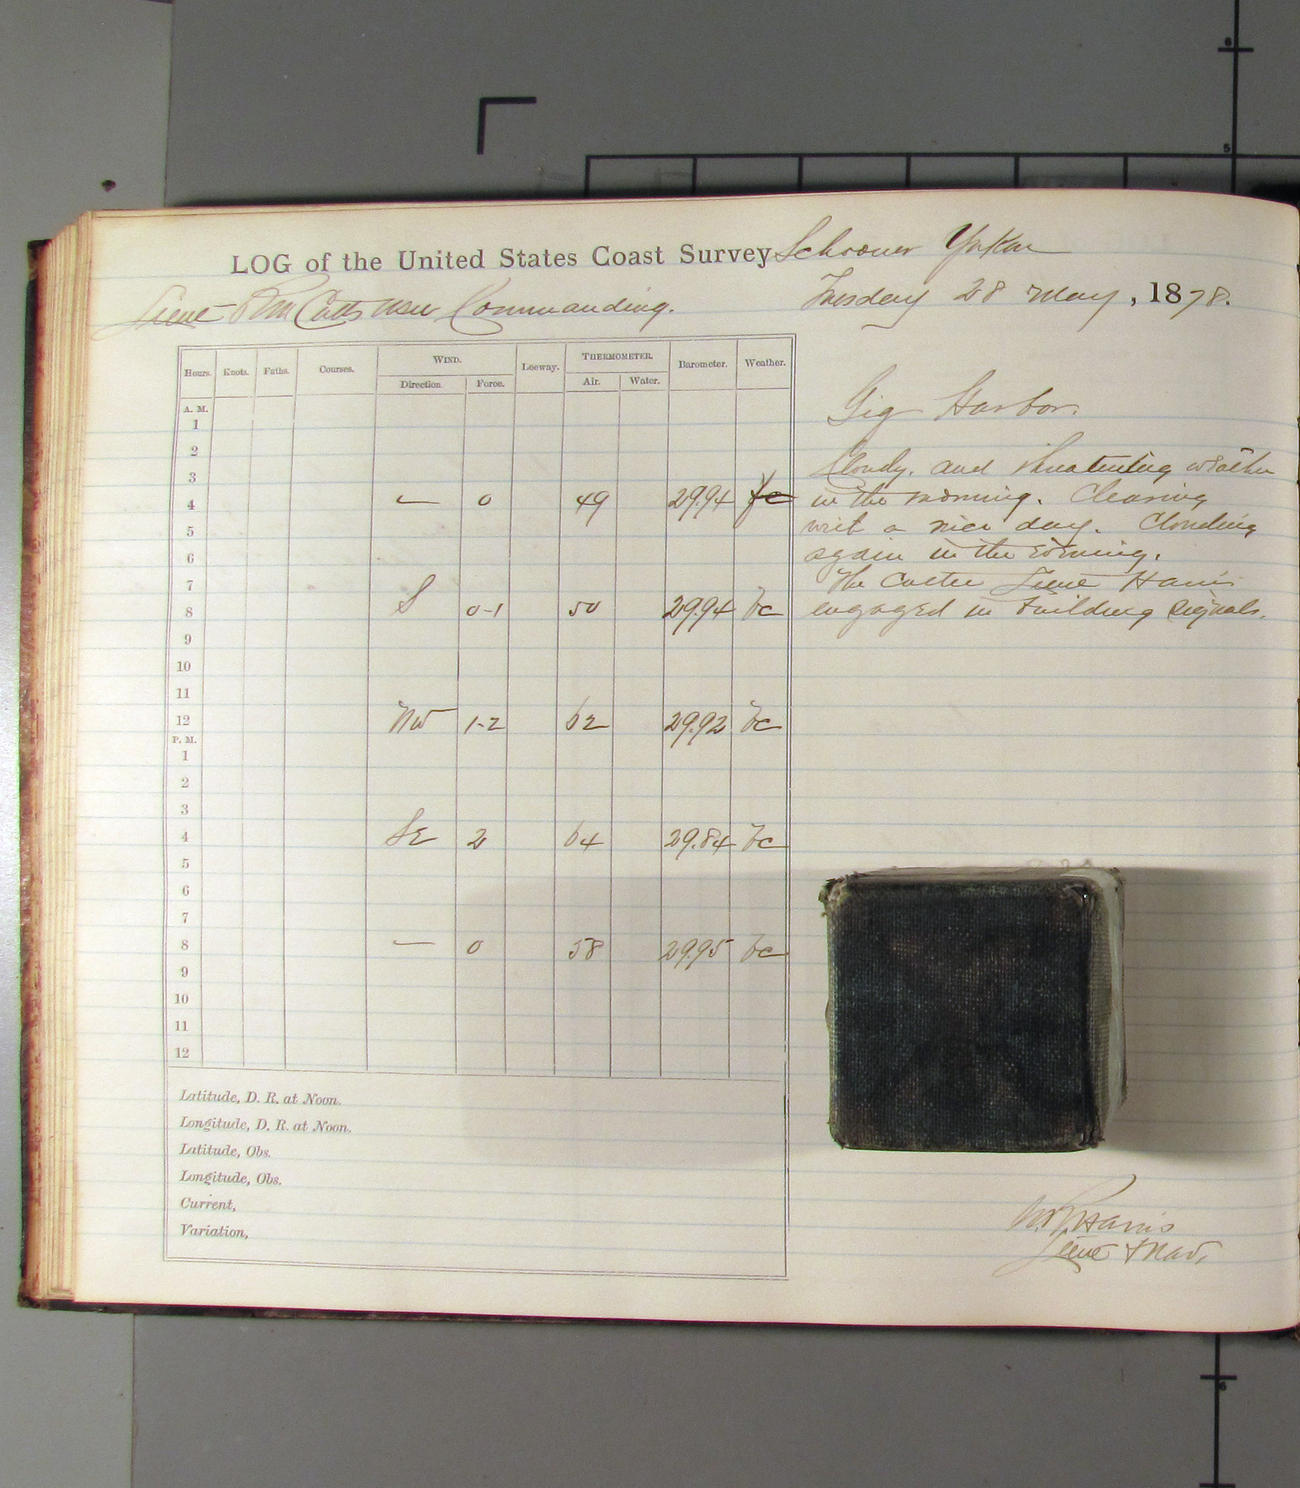 LOG of the United States Coast Survey Schooner Yukon
Lieut Commanding.
Tuesday 28 May, 1878.
Hours. Knots. Faths. Courses. WIND. Leeway. THERMOMETER. Barometer. Weather.
Direction. Force. Air. Water.
A. M.
1
2
3
4 — 0 49 29.94 bc
5
6
7
8 S 0-1 50 29.94 bc
9
10
11
12 NW 1-2 62 29.92 bc
P. M.
1
2
3
4 SE 2 64 29.84 bc
5
6
7
8 — 0 58 29.95 bc
9
10
11
12
Latitude, D. R. at Noon.
Longitude, D. R. at Noon.
Latitude, Obs.
Longitude, Obs.
Current,
Variation,
Gig Harbor.
Cloudy. and threatening weather
in the morning. Clearing
with a nice day. Clouding
again in the evening.
The Cutter Lieut Harris
engaged in building Signals.
Harris
Lieut & Nav.
6
5
6